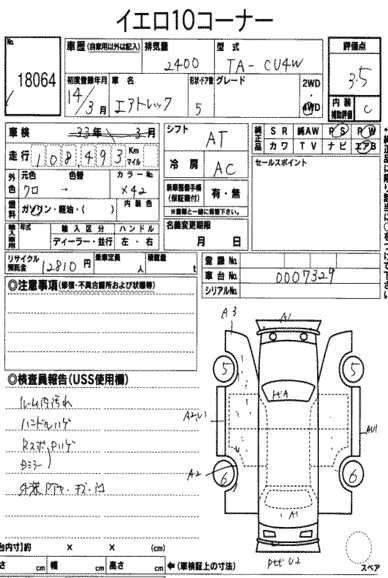 イエロ10コーナー
No. 18064
車歴(自家用以外は記入) 排気量 2400 型式 TA-CU4W
評価点 3.5
初度登録年月 14/3月 車名 エアトレック 形状・ドア数 5 グレード 2WD・4WD
内装補助評価 C
車検 33年 3月 シフト AT
純正品 SR 純AW PS PW
カワ TV ナビ エアB
走行 108,493 Km マイル 冷房 AC
セールスポイント
外色 元色 クロ → 色替 カラーNo. X42
燃料 ガソリン・軽油・( ) 内装色
新車整備手帳(保証書付) 有・無
※車両と一緒に保管下さい。
輸入車用 年式 輸入区分 ハンドル
ディーラー・並行 左・右
名義変更期限 月 日
リサイクル預託金 12810円 乗車定員 人 積載量 t
登録No.
車台No. 0007329
シリアルNo.
◎注意事項(修復・不具合箇所および状態等)
A3 A1
5 5
◎検査員報告(USS使用欄)
ルーム内汚れ
ハンドルハゲ
A2 6 6 AU1
A1
U2
台内寸)約 × × (cm)
さ cm 幅 cm 高さ cm ←(車検証上の寸法)
スペア